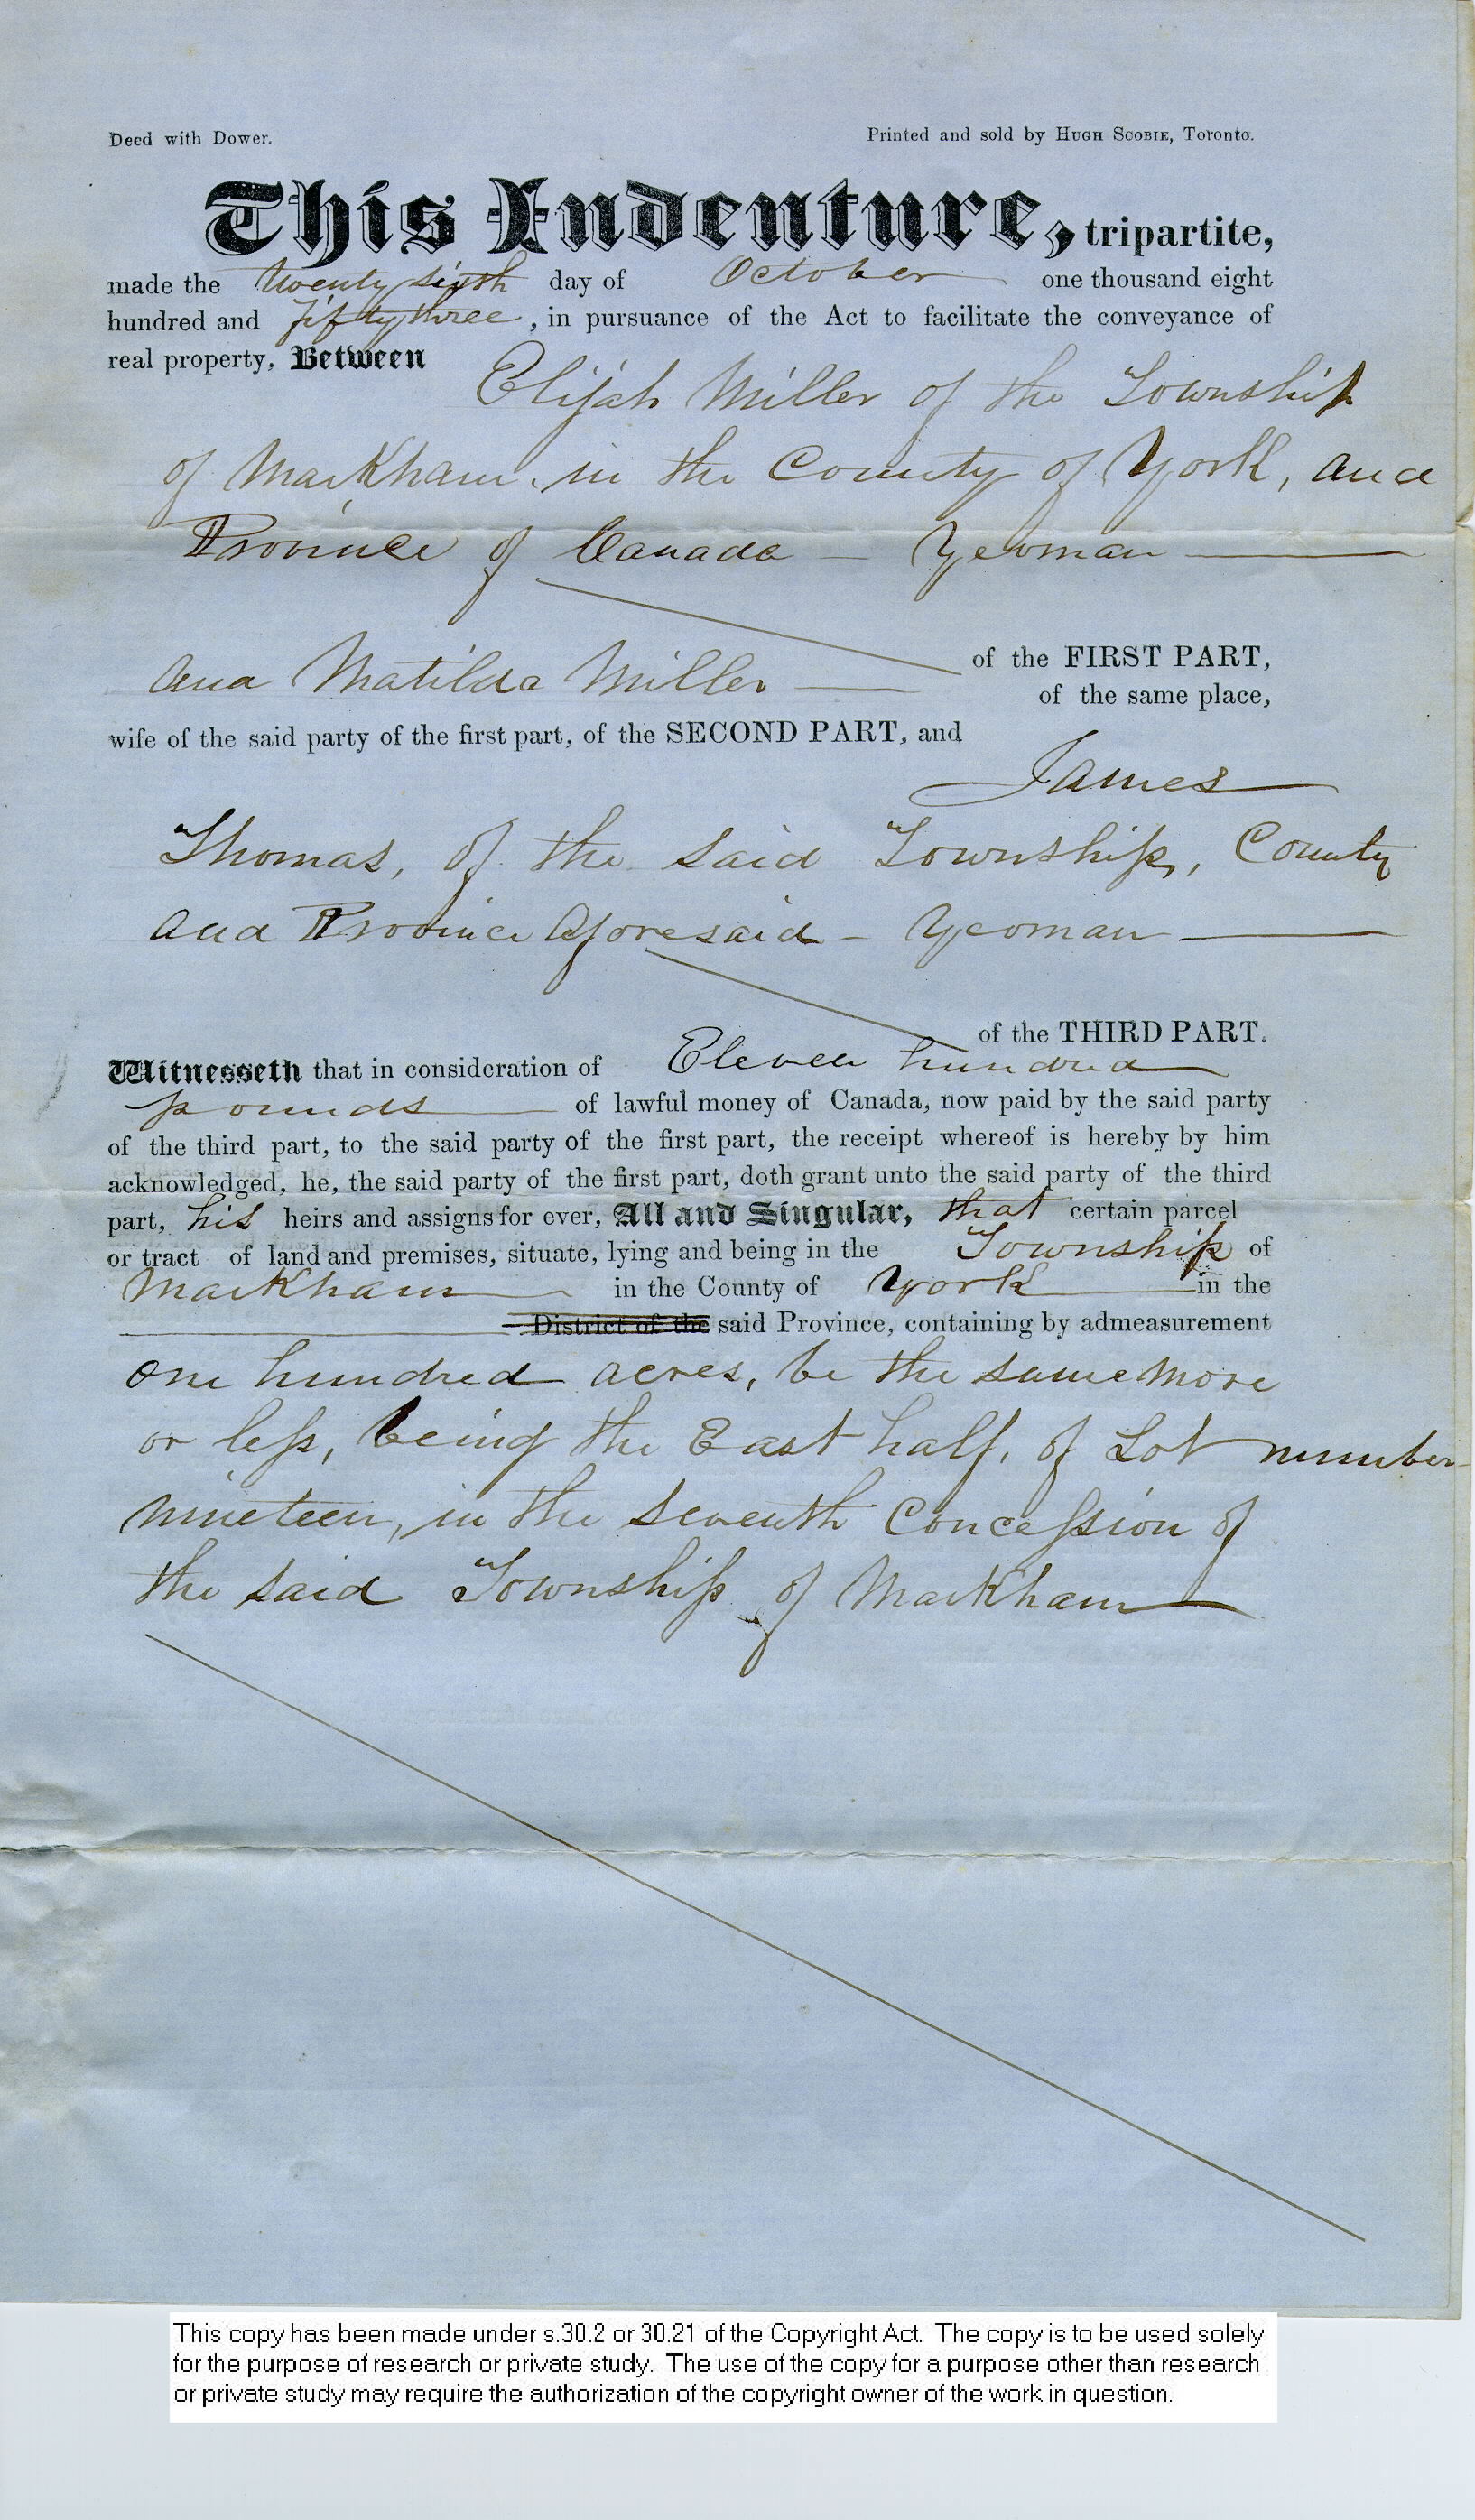 Deed with Dower.
Printed and sold by HUGH SCOBIE, Toronto.
This Indenture, tripartite,
made the twenty sixth day of October one thousand eight
hundred and fifty three, in pursuance of the Act to facilitate the conveyance of
real property, Between
Elijah Miller of the Township
of Markham, in the County of York, and
Province of Canada — Yeoman —
of the FIRST PART,
Ana Matilda Miller — of the same place,
wife of the said party of the first part, of the SECOND PART, and
James
Thomas, of the said Township, County
and Province Aforesaid — Yeoman —
of the THIRD PART.
Witnesseth that in consideration of Eleven hundred
pounds — of lawful money of Canada, now paid by the said party
of the third part, to the said party of the first part, the receipt whereof is hereby by him
acknowledged, he, the said party of the first part, doth grant unto the said party of the third
part, his heirs and assigns for ever, All and Singular, that certain parcel
or tract of land and premises, situate, lying and being in the Township of
Markham in the County of York in the
District of the said Province, containing by admeasurement
one hundred acres, be the same more
or less, being the East half, of Lot number
nineteen, in the seventh Concession of
the said Township of Markham
This copy has been made under s.30.2 or 30.21 of the Copyright Act. The copy is to be used solely
for the purpose of research or private study. The use of the copy for a purpose other than research
or private study may require the authorization of the copyright owner of the work in question.